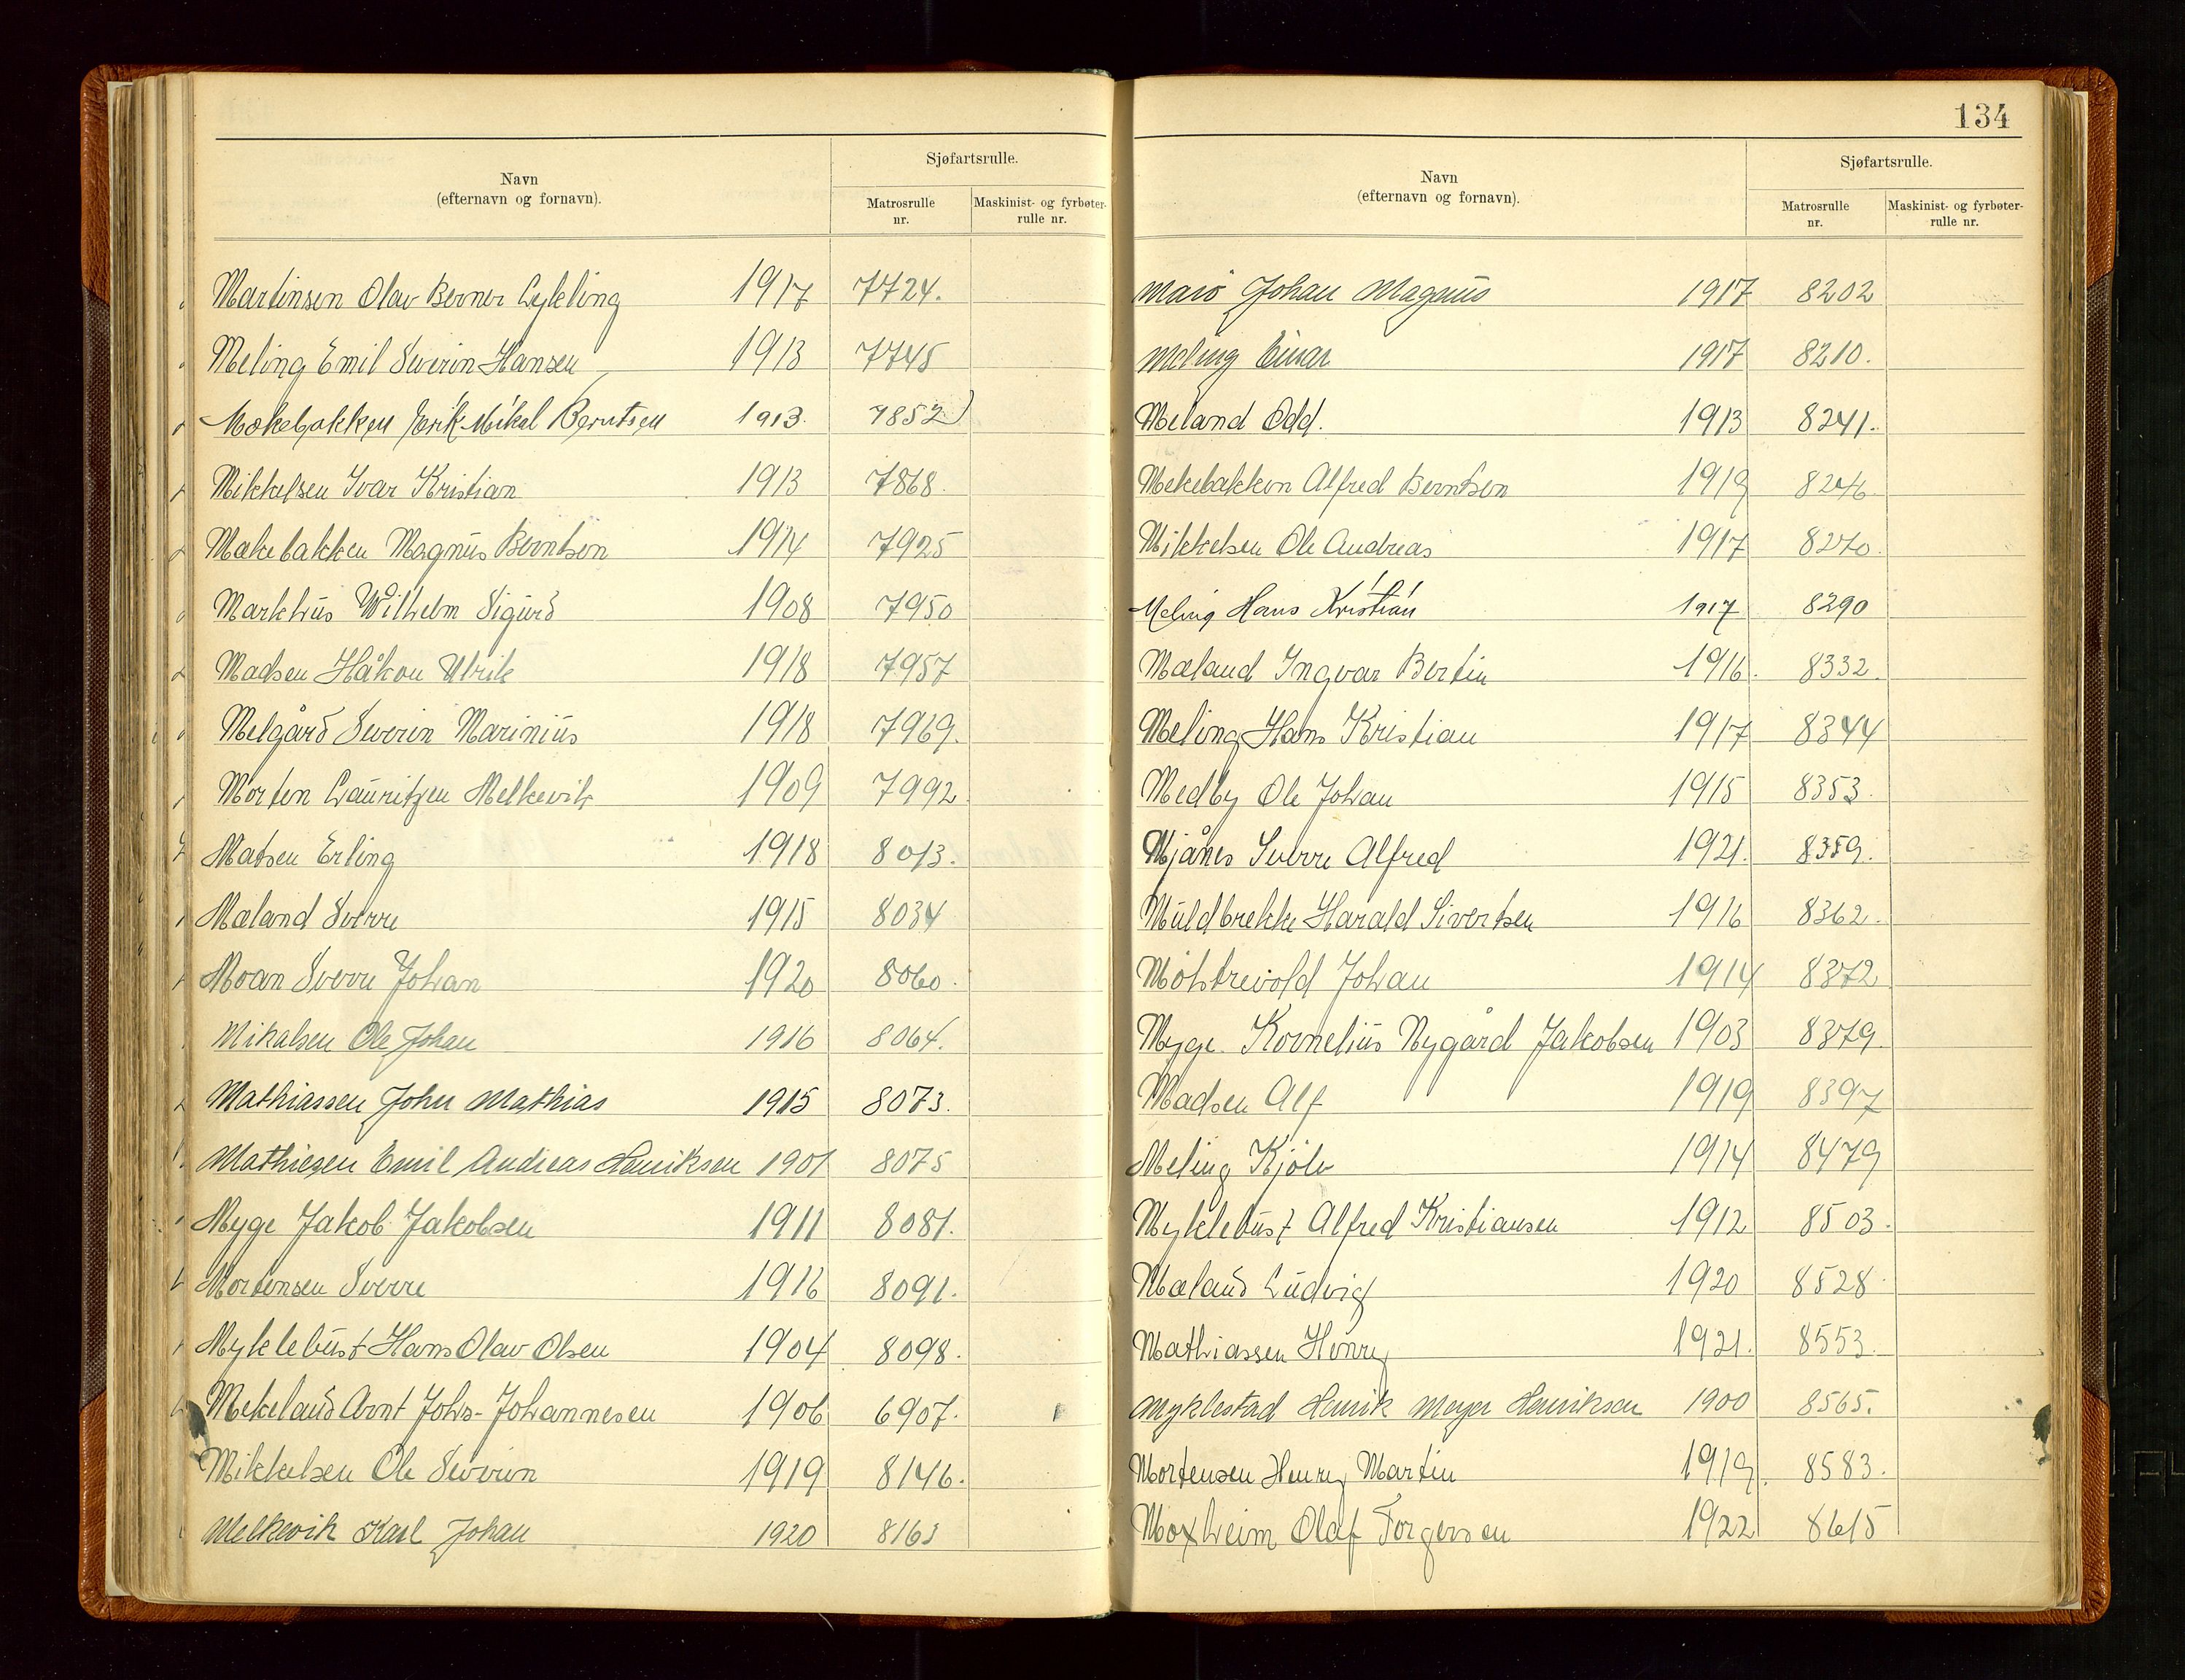 Navn
(efternavn og fornavn).
Sjøfartsrulle.
Matrosrulle
nr.
Maskinist- og fyrbøter-
rulle nr.
Martinsen Olav Berner Lykling 1917 7724.
Meling Emil Severin Hansen 1913 7745
Mokebakken Erik Mikal Berntsen 1913. 7852
Mikkelsen Ivar Kristian 1913 7868.
Mækebakken Magnus Berntsen 1914 7925
Markhus Wilhelm Sigurd 1908 7950
Madsen Håkon Ulrik 1918 7957
Melgård Severin Marinius 1918 7969.
Morten Lauritzen Melkevik 1909 7992
Matsen Erling 1918 8013.
Mæland Sverre 1915 8034
Moan Sverre Johan 1920 8060.
Mikalsen Ole Johan 1916 8064.
Mathiassen John Mathias 1915 8073.
Mathiesen Emil Andreas Henriksen 1901 8075
Myge Jakob Jakobsen 1911 8081.
Mortensen Sverre 1916 8091.
Myklebust Hans Olav Olsen 1904 8098.
Mekeland Arnt Johs. Johannesen 1906 6907.
Mikkelsen Ole Severin 1919 8146.
Melkevik Karl Johan 1920 8163
134
Navn
(efternavn og fornavn).
Sjøfartsrulle.
Matrosrulle
nr.
Maskinist- og fyrbøter-
rulle nr.
Johan Magnus 1917 8202
Meling Einar 1917 8210.
Meland Odd. 1913 8241.
Mekebakken Alfred Berntsen 1919 8246
Mikkelsen Ole Andreas 1917 8270.
Meling Hans Kristian 1917 8290
Mæland Ingvar Bertin 1916. 8332.
Meling Hans Kristian 1917 8344
Medby Ole Johan 1915 8353.
Mjånes Sverre Alfred 1921. 8359.
Muldbrekke Harald Sivertsen 1916 8362.
Molstrevold Johan 1914 8372
Myge Kornelius Nygård Jakobsen 1903 8379.
Madsen Alf 1919 8397
Meling Kjølv 1914 8479
Myklebust Alfred Kristiansen 1912 8503.
Mæland Ludvig 1920 8528.
Mathiassen Henry 1921. 8553.
Myklestad Henrik Meyer Henriksen 1900 8565.
Mortensen Henry Martin 1919. 8583.
Moxheim Olaf Torgersen 1922 8615